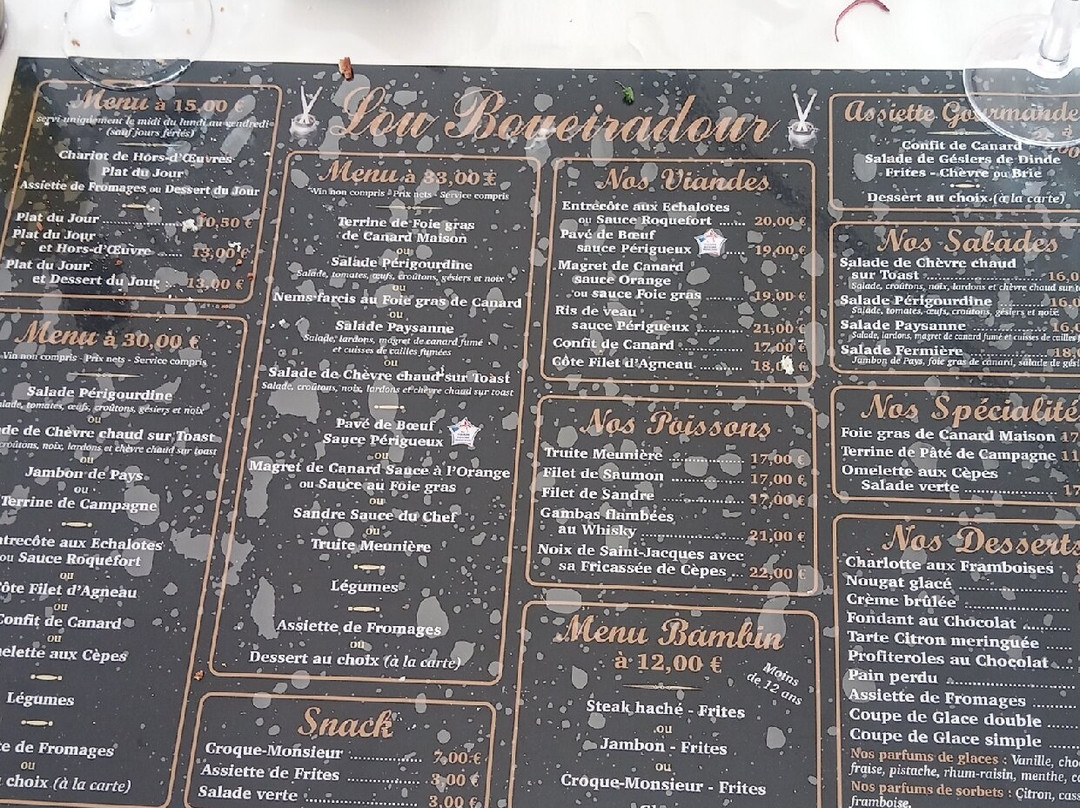 Lou Boueiradour
Menu à 15,00 €
servi uniquement le midi du lundi au vendredi
(sauf jours fériés)
Chariot de Hors-d'Œuvres
Plat du Jour
Assiette de Fromages ou Dessert du Jour
Plat du Jour 10,50 €
Plat du Jour
et Hors-d'Œuvre ...... 13,00 €
Plat du Jour
et Dessert du Jour .. 13,00 €
Menu à 30,00 €
Vin non compris - Prix nets - Service compris
Salade Périgourdine
salade, tomates, œufs, croûtons, gésiers et noix
ou
de de Chèvre chaud sur Toast
croûtons, noix, lardons et chèvre chaud sur toast
ou
Jambon de Pays
ou
Terrine de Campagne
ntrecôte aux Echalotes
ou Sauce Roquefort
ou
Côte Filet d'Agneau
ou
Confit de Canard
ou
melette aux Cèpes
Légumes
te de Fromages
choix (à la carte)
Menu à 33,00 €
Vin non compris - Prix nets - Service compris
Terrine de Foie gras
de Canard Maison
ou
Salade Périgourdine
Salade, tomates, œufs, croûtons, gésiers et noix
ou
Nems farcis au Foie gras de Canard
ou
Salade Paysanne
Salade, lardons, magret de canard fumé
et cuisses de cailles fumées
ou
Salade de Chèvre chaud sur Toast
Salade, croûtons, noix, lardons et chèvre chaud sur toast
Pavé de Bœuf
Sauce Périgueux
ou
Magret de Canard Sauce à l'Orange
ou Sauce au Foie gras
ou
Sandre Sauce du Chef
ou
Truite Meunière
Légumes
Assiette de Fromages
ou
Dessert au choix (à la carte)
Snack
Croque-Monsieur 7,00 €
Assiette de Frites 3,00 €
Salade verte 3,00 €
Nos Viandes
Entrecôte aux Echalotes
ou Sauce Roquefort 20,00 €
Pavé de Bœuf
sauce Périgueux 19,00 €
Magret de Canard
sauce Orange
ou sauce Foie gras 19,00 €
Ris de veau
sauce Périgueux 21,00 €
Confit de Canard 17,00 €
Côte Filet d'Agneau 18,00 €
Nos Poissons
Truite Meunière 17,00 €
Filet de Saumon 17,00 €
Filet de Sandre 17,00 €
Gambas flambées
au Whisky 21,00 €
Noix de Saint-Jacques avec
sa Fricassée de Cèpes 22,00 €
Menu Bambin
à 12,00 €
Moins
de 12 ans
Steak haché - Frites
ou
Jambon - Frites
ou
Croque-Monsieur - Frites
Assiette Gourmande
à
Confit de Canard
Salade de Gésiers de Dinde
Frites - Chèvre ou Brie
Dessert au choix (à la carte)
Nos Salades
Salade de Chèvre chaud
sur Toast 16,0
Salade, croûtons, noix, lardons et chèvre chaud sur t
Salade Périgourdine 16,0
Salade, tomates, œufs, croûtons, gésiers et noix
Salade Paysanne 16,0
Salade, lardons, magret de canard fumé et cuisses de cailles f
Salade Fermière 18,0
Jambon de Pays, foie gras de canard, salade de gési
Nos Spécialité
Foie gras de Canard Maison 17
Terrine de Pâté de Campagne 11
Omelette aux Cèpes
Salade verte 17
Nos Desserts
Charlotte aux Framboises
Nougat glacé
Crème brûlée
Fondant au Chocolat
Tarte Citron meringuée
Profiteroles au Chocolat
Pain perdu
Assiette de Fromages
Coupe de Glace double
Coupe de Glace simple
Nos parfums de glaces : Vanille, choc
fraise, pistache, rhum-raisin, menthe, c
Nos parfums de sorbets : Citron, cass
framboise,